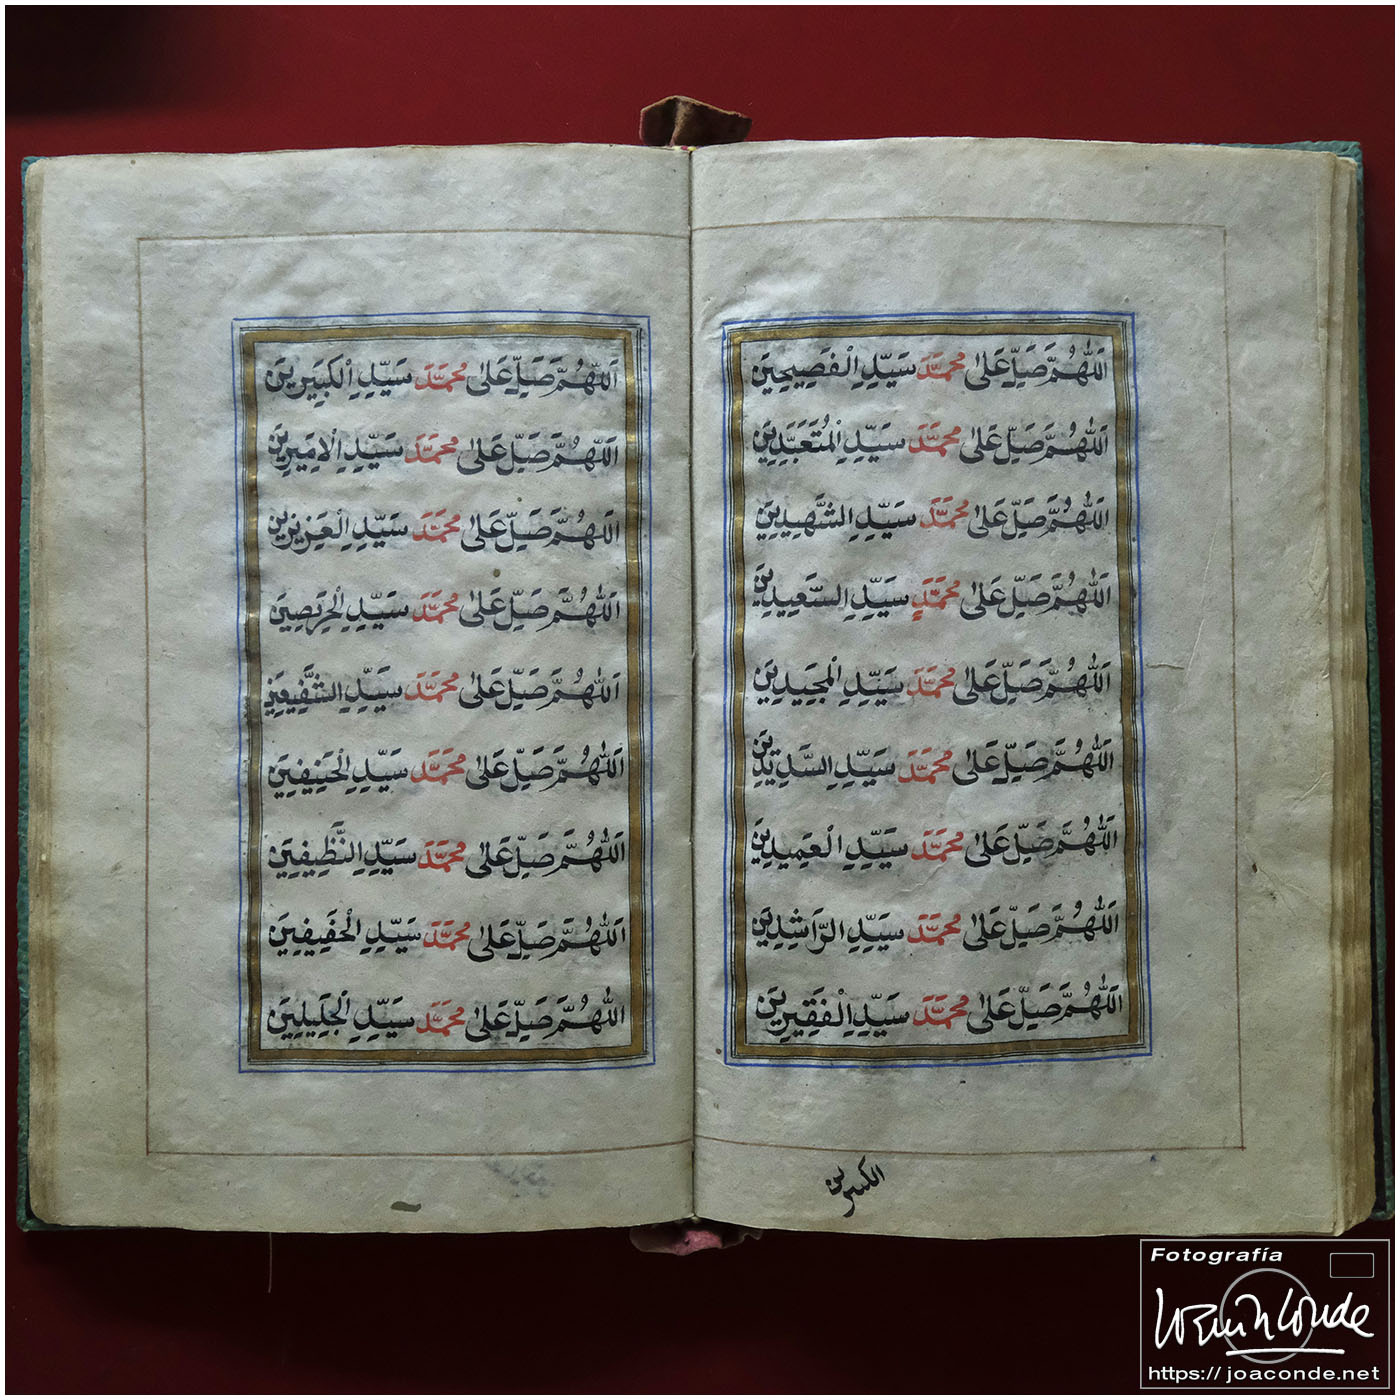 اَللّٰهُمَّ صَلِّ عَلٰى مُحَمَّدَ سَيِّدِ الْفَصِيحِينَ
اَللّٰهُمَّ صَلِّ عَلٰى مُحَمَّدَ سَيِّدِ الْمُتَعَبِّدِينَ
اَللّٰهُمَّ صَلِّ عَلٰى مُحَمَّدَ سَيِّدِ الشَّهِيدِينَ
اَللّٰهُمَّ صَلِّ عَلٰى مُحَمَّدٍ سَيِّدِ السَّعِيدِينَ
اَللّٰهُمَّ صَلِّ عَلٰى مُحَمَّدَ سَيِّدِ الْمَجِيدِينَ
اَللّٰهُمَّ صَلِّ عَلٰى مُحَمَّدَ سَيِّدِ السَّدِيدِينَ
اَللّٰهُمَّ صَلِّ عَلٰى مُحَمَّدَ سَيِّدِ الْعَمِيدِينَ
اَللّٰهُمَّ صَلِّ عَلٰى مُحَمَّدَ سَيِّدِ الرَّاشِدِينَ
اَللّٰهُمَّ صَلِّ عَلٰى مُحَمَّدَ سَيِّدِ الْفَقِيرِينَ
الكبيرين
اَللّٰهُمَّ صَلِّ عَلٰى مُحَمَّدَ سَيِّدِ الْكَبِيرِينَ
اَللّٰهُمَّ صَلِّ عَلٰى مُحَمَّدَ سَيِّدِ الْامِيرِينَ
اَللّٰهُمَّ صَلِّ عَلٰى مُحَمَّدَ سَيِّدِ الْعَزِيزِينَ
اَللّٰهُمَّ صَلِّ عَلٰى مُحَمَّدَ سَيِّدِ الْحَرِيصِينَ
اَللّٰهُمَّ صَلِّ عَلٰى مُحَمَّدَ سَيِّدِ الشَّفِيعِينَ
اَللّٰهُمَّ صَلِّ عَلٰى مُحَمَّدَ سَيِّدِ الْحَنِيفِينَ
اَللّٰهُمَّ صَلِّ عَلٰى مُحَمَّدَ سَيِّدِ النَّظِيفِينَ
اَللّٰهُمَّ صَلِّ عَلٰى مُحَمَّدَ سَيِّدِ الْخَفِيفِينَ
اَللّٰهُمَّ صَلِّ عَلٰى مُحَمَّدَ سَيِّدِ الْجَلِيلِينَ
Fotografía
https://joaconde.net